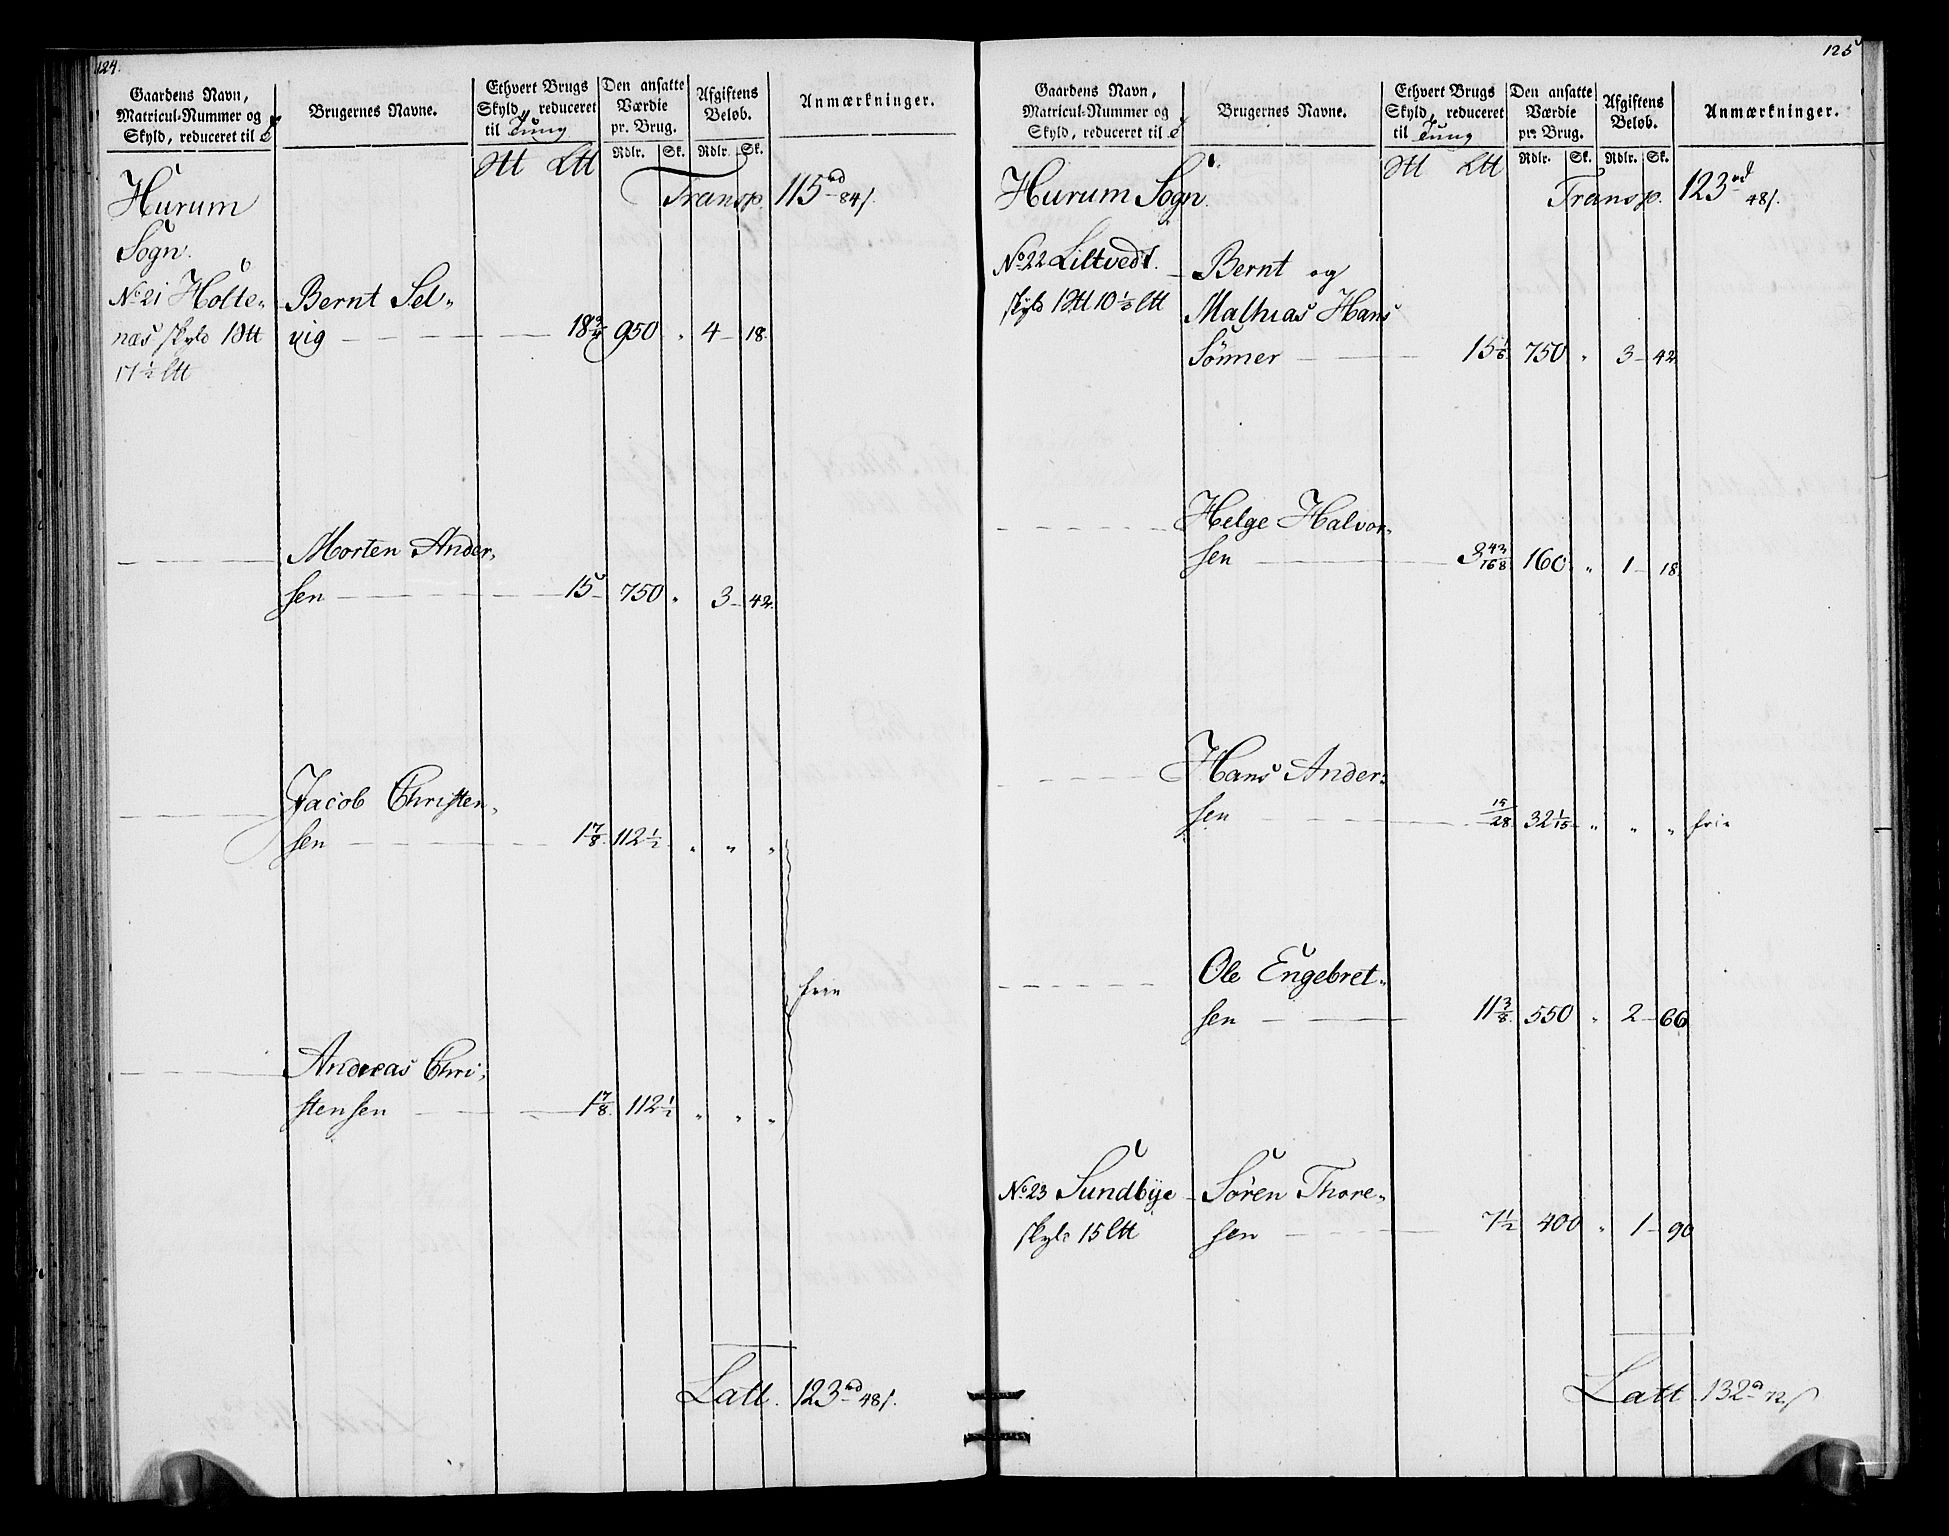 124.
Gaardens Navn,
Matricul-Nummer og
Skyld, reduceret til
Brugernes Navne.
Ethvert Brugs
Skyld, reduceret
til Tung
Den ansatte
Værdie
pr. Brug.
Afgiftens
Beløb.
Anmærkninger.
Rdlr. Sk. Rdlr. Sk.
Hurum
Sogn.
Transp. 115 rd 84 s.
No 21 Holte-
næs skyld 1
17 1/2
Bernt Sel-
vig 18 3/4 950 " 4 18.
Morten Ander-
sen 15 750 " 3 42.
Jacob Christen-
sen 1 7/8 112 1/2 " " "
frie
Andreas Chri-
stensen 1 7/8 112 1/2 " " "
Latt. 123 rd 48 s.
125
Gaardens Navn,
Matricul-Nummer og
Skyld, reduceret til
Brugernes Navne.
Ethvert Brugs
Skyld, reduceret
til Tung
Den ansatte
Værdie
pr. Brug.
Afgiftens
Beløb.
Anmærkninger.
Rdlr. Sk. Rdlr. Sk.
Hurum Sogn.
Transp. 123 rd 48 s.
No 22 Liltvedt.
skyld 1 10 1/2
Bernt og
Mathias Hans
Sønner 15 1/6 750 " 3 42
Helge Halvor-
sen 3 43/168 160 " 1 18
Hans Ander-
sen 15/28 32 1/15 " " " frie
Ole Engebret-
sen 11 3/8 550 " 2 66
No 23 Sundbye
skyld 15
Søren Thore-
sen 7 1/2 400 " 1 90
Latt 132 rd 72 s